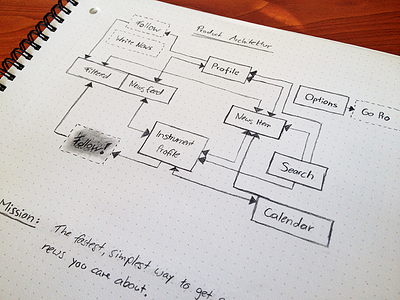 Follow
Product Architettur
Write News
Profile
Filtered
Newsfeed
Options
Go Pro
News Item
Follow!
Instrument
Profile
Search
Calendar
Mission:
The fastest, simplest way to get
news you care about.